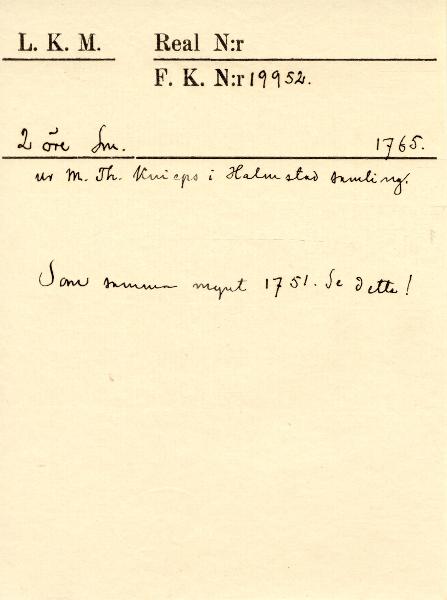 L. K. M. Real N:r
F. K. N:r 19952.
2 öre Sm. 1765.
ur M. Th. Knieps i Halmstad samling.
Som samma mynt 1751. Se detta!